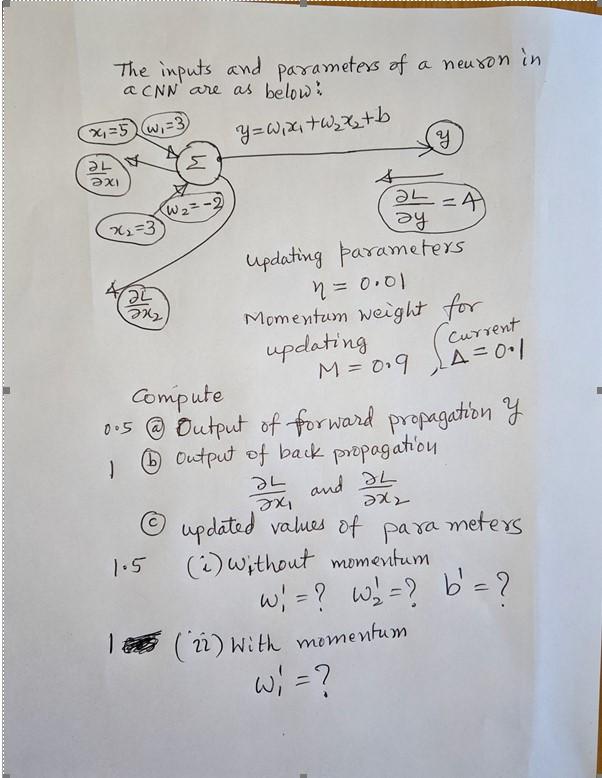 The inputs and parameters of a neuron in
a CNN are as below:
x₁=5 w₁=3
y=w₁x₁+w₂x₂+b
y
Σ
∂L/∂x₁
∂L/∂y = 4
w₂=-2
x₂=3
∂L/∂x₂
updating parameters
η = 0.01
Momentum weight for
updating
M = 0.9 , { current
Δ = 0.1
Compute
0.5 (a) Output of forward propagation y
1 (b) output of back propagation
∂L/∂x₁ and ∂L/∂x₂
(c) updated values of parameters
1.5 (i) Without momentum
w₁' = ? w₂' = ? b' = ?
1 (ii) With momentum
w₁' = ?